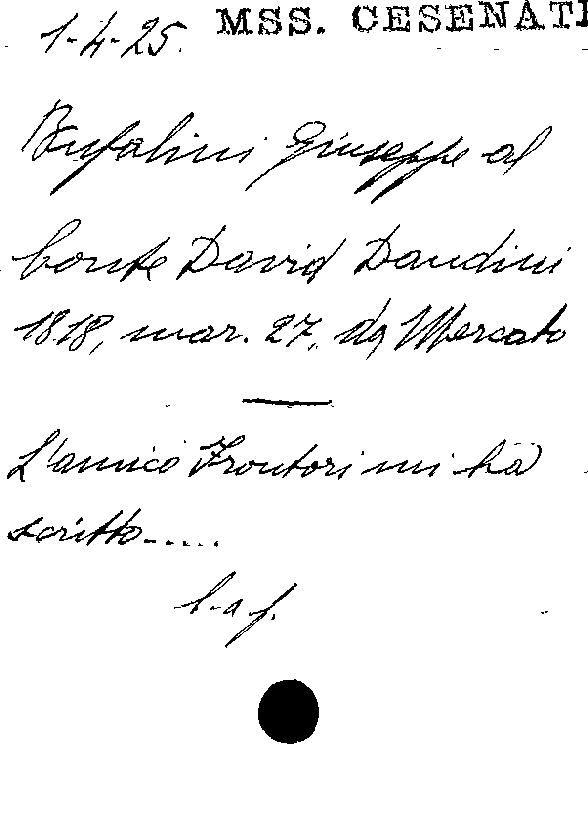 1-4-25. MSS. CESENATI
Bufalini Giuseppe al
Conte David Dandini
1818, mar. 27, da Mercato
L'amico Frontori mi ha
scritto.....
l. a f.